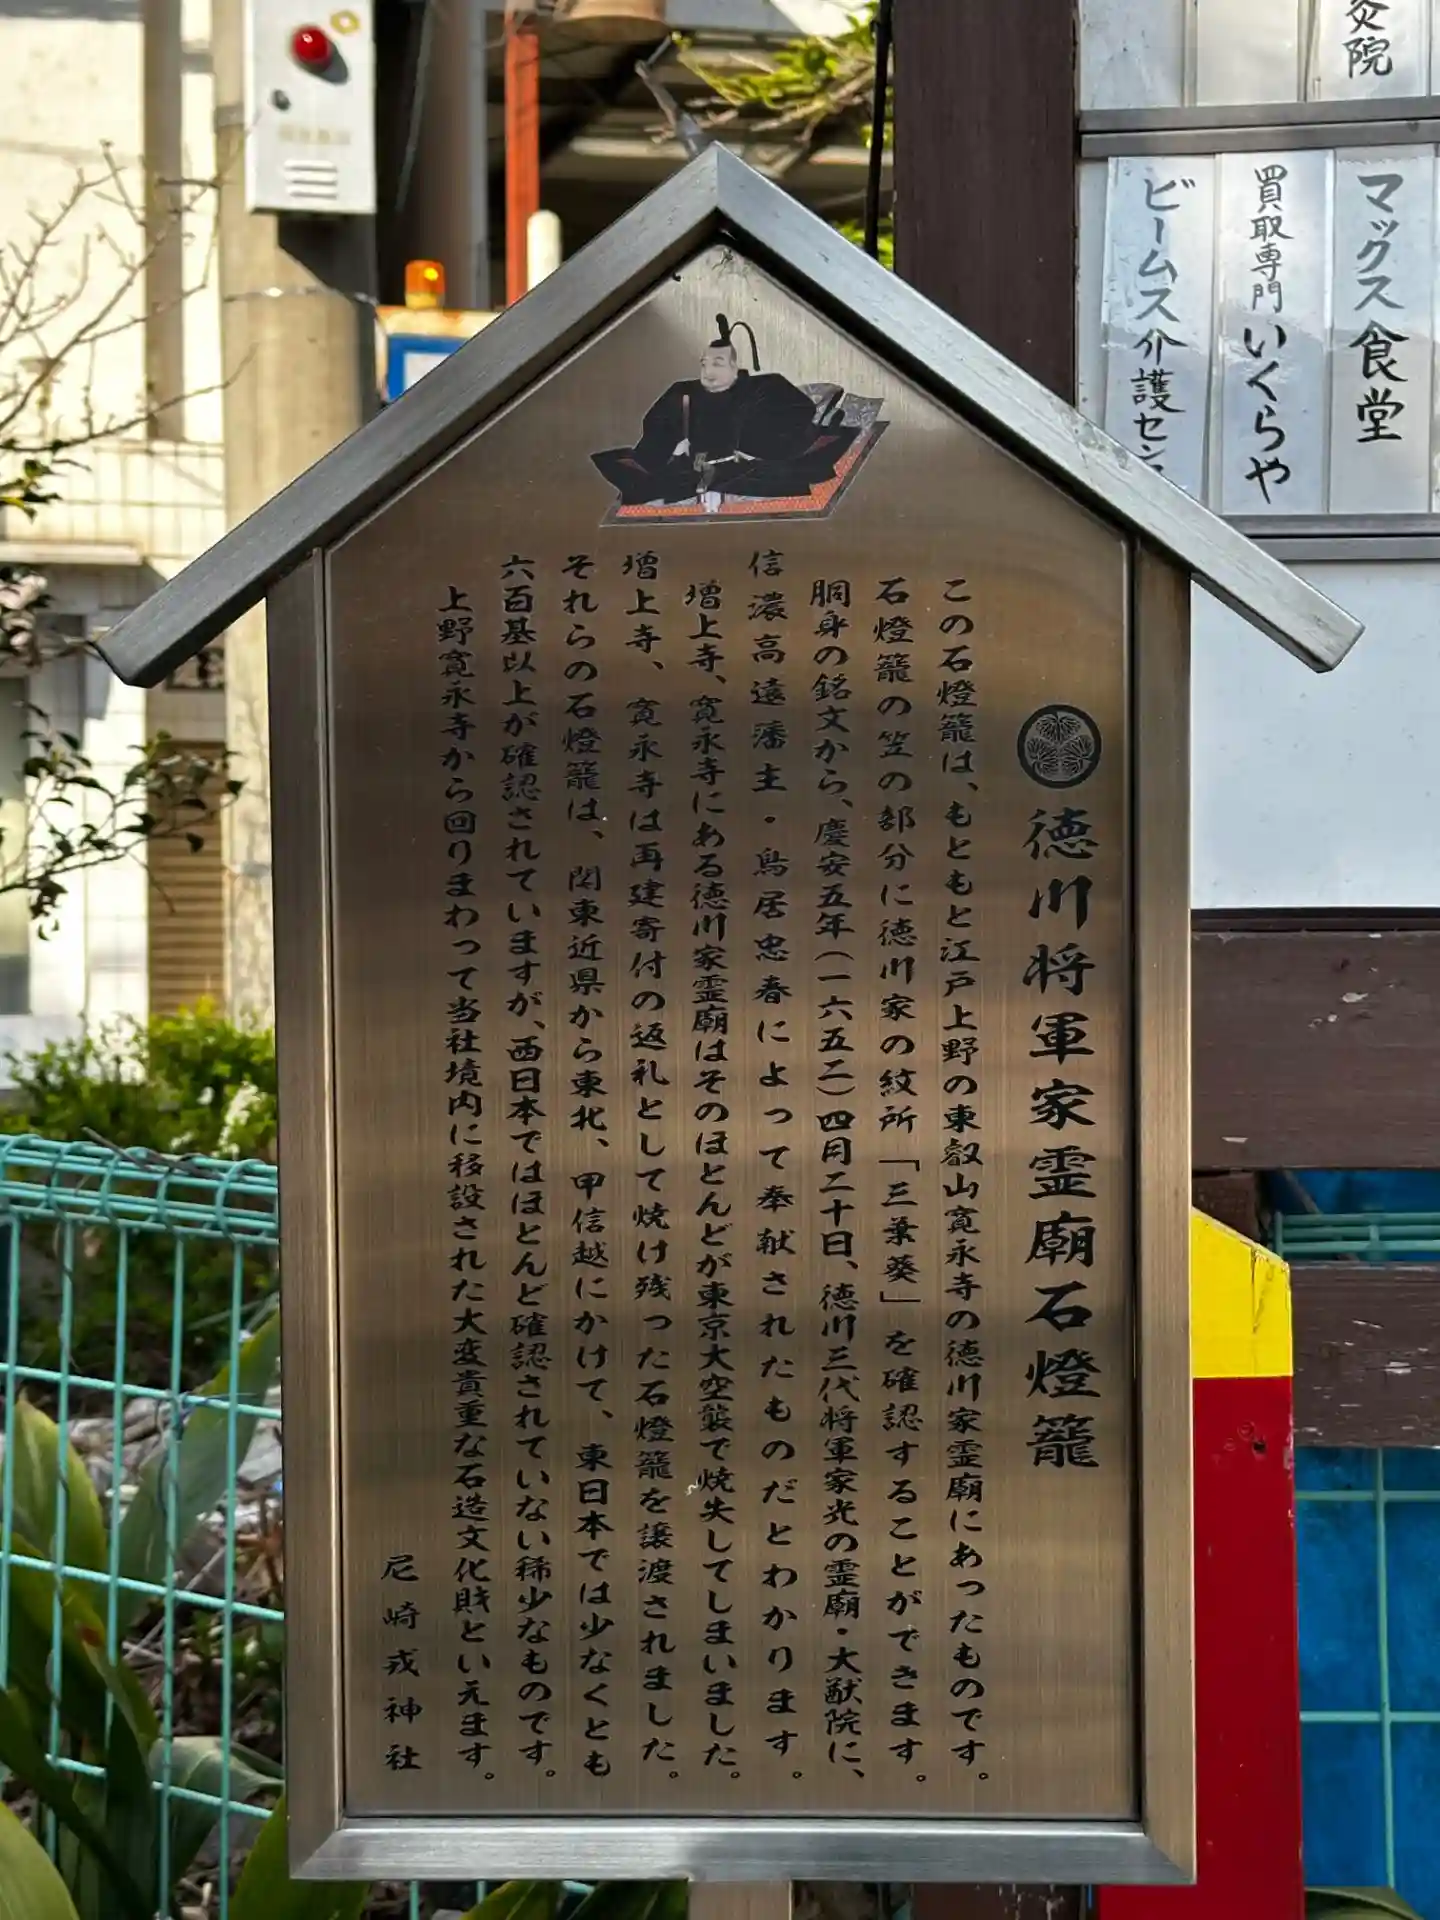 徳川将軍家霊廟石燈籠
この石燈籠は、もともと江戸上野の東叡山寛永寺の徳川家霊廟にあったものです。
石燈籠の笠の部分に徳川家の紋所「三葉葵」を確認することができます。
胴身の銘文から、慶安五年(一六五二)四月二十日、徳川三代将軍家光の霊廟・大猷院に、
信濃高遠藩主・鳥居忠春によって奉献されたものだとわかります。
増上寺、寛永寺にある徳川家霊廟はそのほとんどが東京大空襲で焼失してしまいました。
増上寺、寛永寺は再建寄付の返礼として焼け残った石燈籠を譲渡されました。
それらの石燈籠は、関東近県から東北、甲信越にかけて、東日本では少なくとも
六百基以上が確認されていますが、西日本ではほとんど確認されていない稀少なものです。
上野寛永寺から回りまわって当社境内に移設された大変貴重な石造文化財といえます。
尼崎戎神社
灸院
マックス食堂
買取専門いくらや
ビームス介護セン